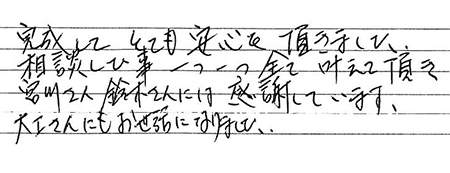 完成して とても 安心を 頂きました。
相談した事 一つ一つ全て 叶えて頂き
宮川さん 鈴木さんには 感謝しています、
大工さんにもお世話になりました。